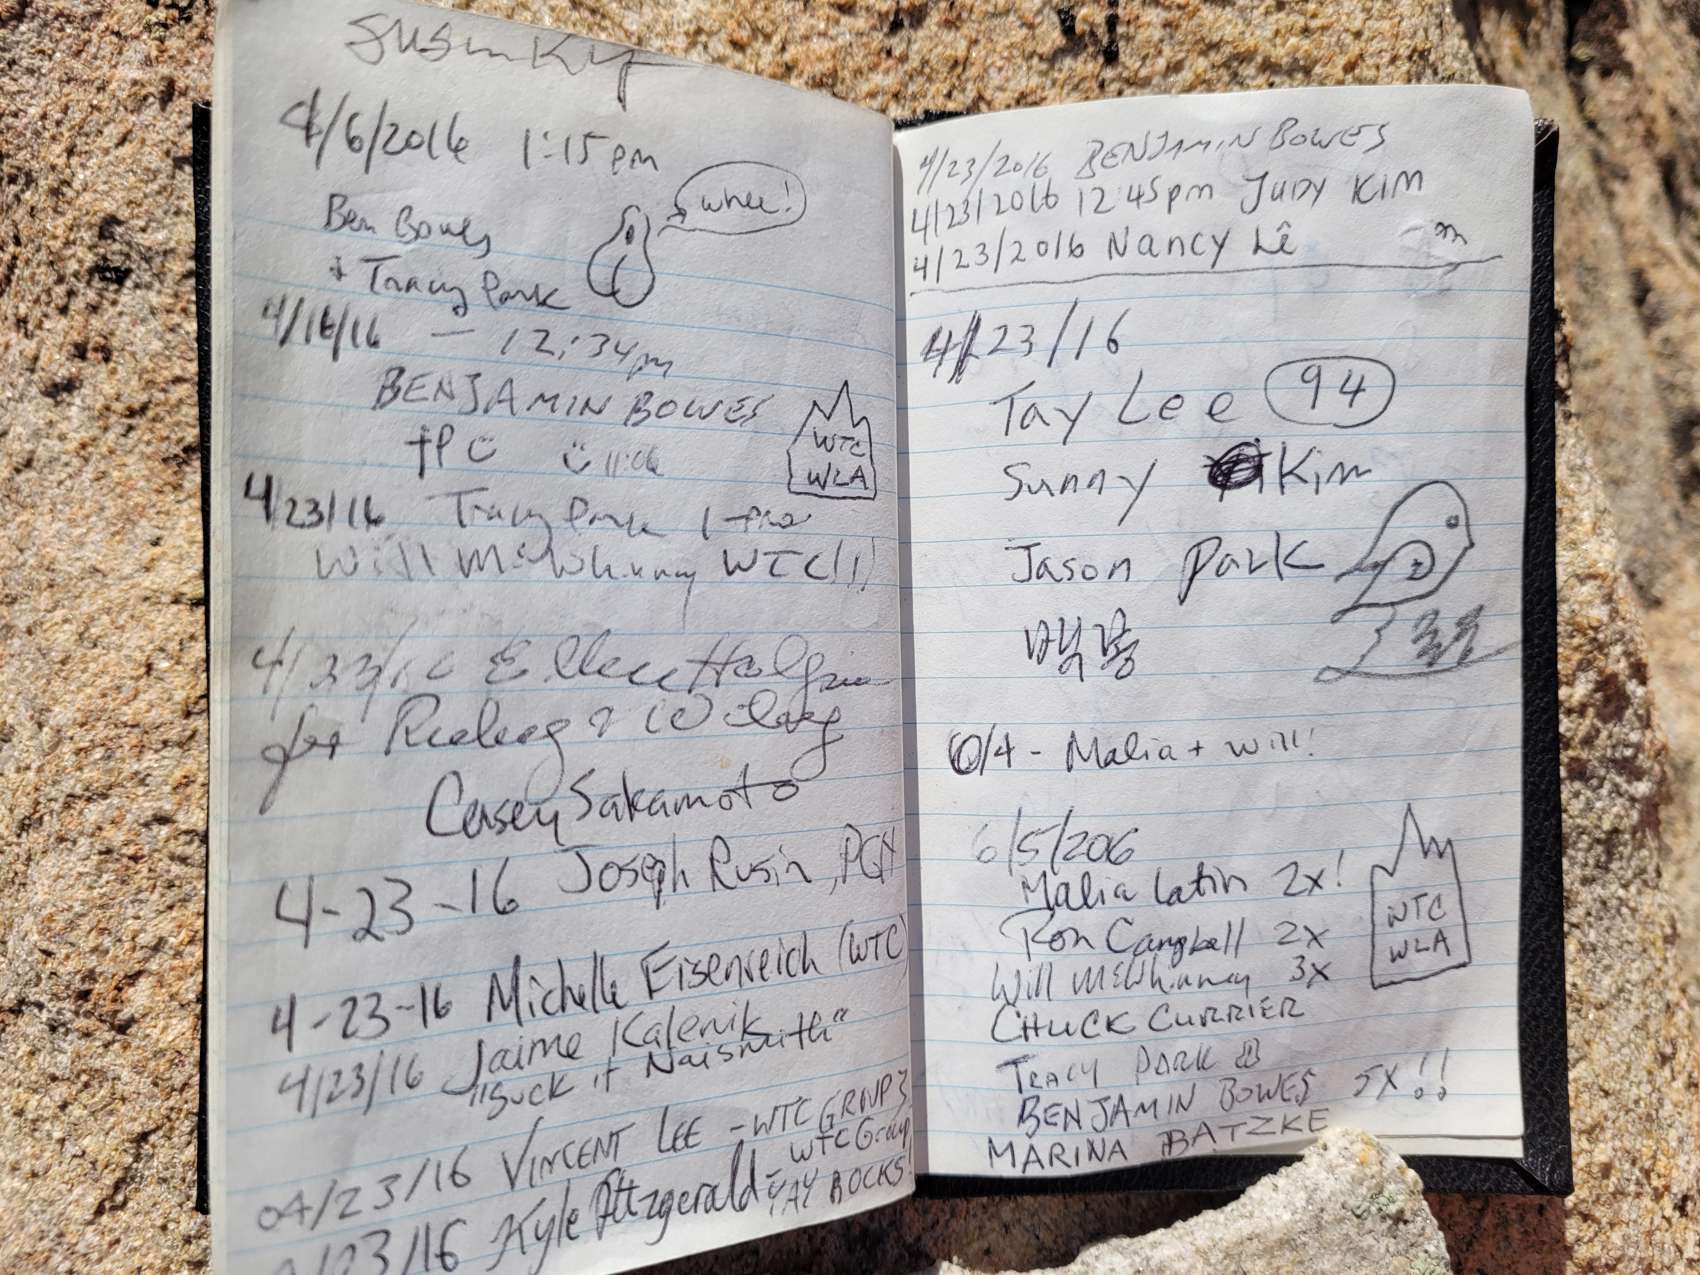 4/6/2016 1:15pm
whee!
Ben Bowes
+ Tracy Park
4/16/16 — 12:34pm
BENJAMIN BOWES
WTC
WLA
+P
4/23/16 Tracy Park
Will McWhinney WTC!!!
4/23/16 Ellen
for
Casey Sakamoto
4-23-16 Joseph Rusin, PGH
4-23-16 Michelle Eisenreich (WTC)
4/23/16 Jaime Kalenik
"Suck it Naismith"
04/23/16 VINCENT LEE - WTC GROUP 3
/23/16 Kyle Fitzgerald - WTC Group
YAY ROCKS!
4/23/2016 BENJAMIN BOWES
4/23/2016 12:45pm JUDY KIM
4/23/2016 NANCY LÊ
4/23/16
Tay Lee 94
Sunny Kim
Jason Park
6/4 - Malia + Will!
6/5/206
Malia Latin 2x!
Ron Campbell 2x
Will McWhinney 3x
CHUCK CURRIER
TRACY PARK
BENJAMIN BOWES 5X!!
MARINA BATZKE
WTC
WLA